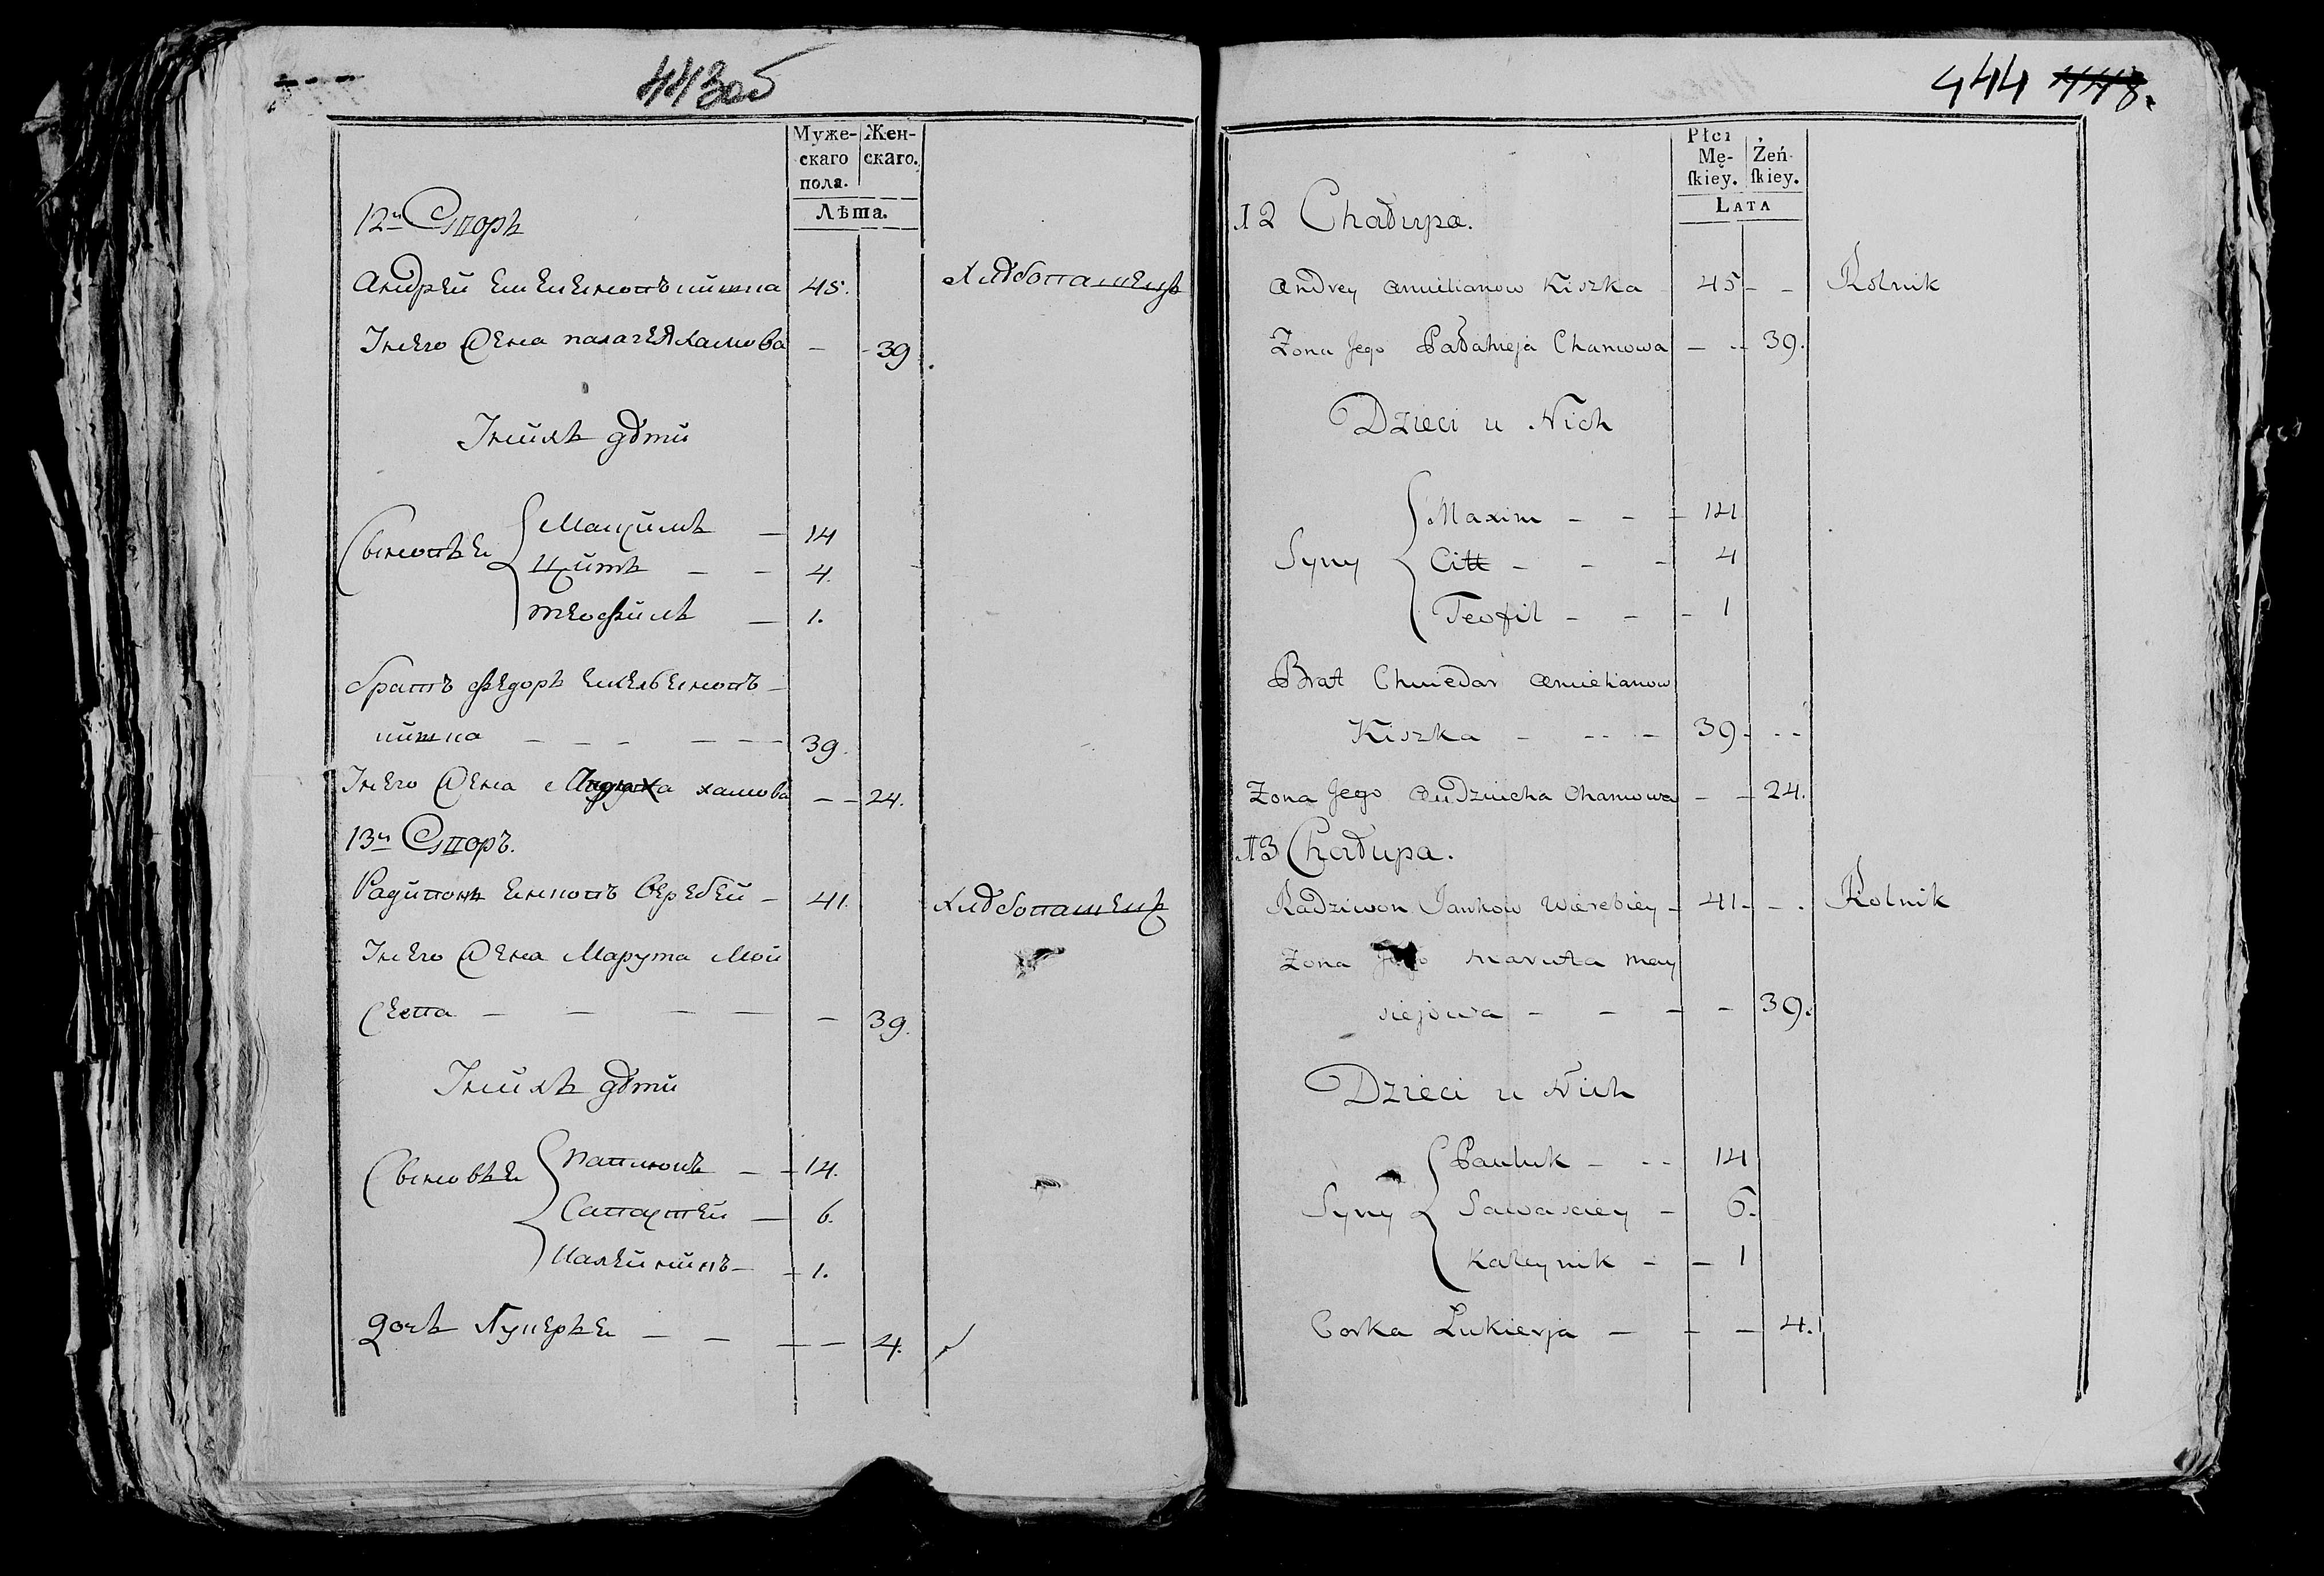 443об
Муже-
скаго
пола.
Жен-
скаго.
Лѣта.
12й Дворъ
Андрей Емельяновъ кишка 45. Хлѣбопашецъ
У него Жена палагея хамова — - 39
У нихъ дѣти
Сыновья
Максимъ — 14
Цитъ — — 4.
теофилъ — 1.
братъ федоръ емельяновъ —
кишка — — — — — — 39.
У него Жена хамова — — 24.
13й Дворъ.
Радивонъ янковъ веребей — 41. Хлѣбопашецъ
У него Жена Марута Мой
сеева — — — — — 39.
У нихъ дѣти
Сыновья
павлюкъ — — 14.
Савастей — 6.
калейникъ — — 1.
дочь Лукерья — — — — 4.
444 448.
Płci
Mę-
ſkiey.
Żeń-
ſkiey.
LATA
12 Chałupa.
Andrey Amielianow Kiszka 45 — — Rolnik
Zona Jego Pałahieja Chamowa — — 39.
Dzieci u Nich
Syny
Maxim — — — 14
Citt — — — 4
Teofil — — — 1
Brat Chwiedar Amielianow
Kiszka — — — — 39 — — —
Zona Jego Audziucha Chamowa — — 24.
13 Chałupa.
Radziwon Jankow Wierebiey — 41 — — . Rolnik
Zona Jego Maruta May
siejowa — — — — 39.
Dzieci u Nich
Syny
Pauluk — — — 14
Sawasciey — 6.
Kaleynik — — 1
Corka Lukierja — — — 4.